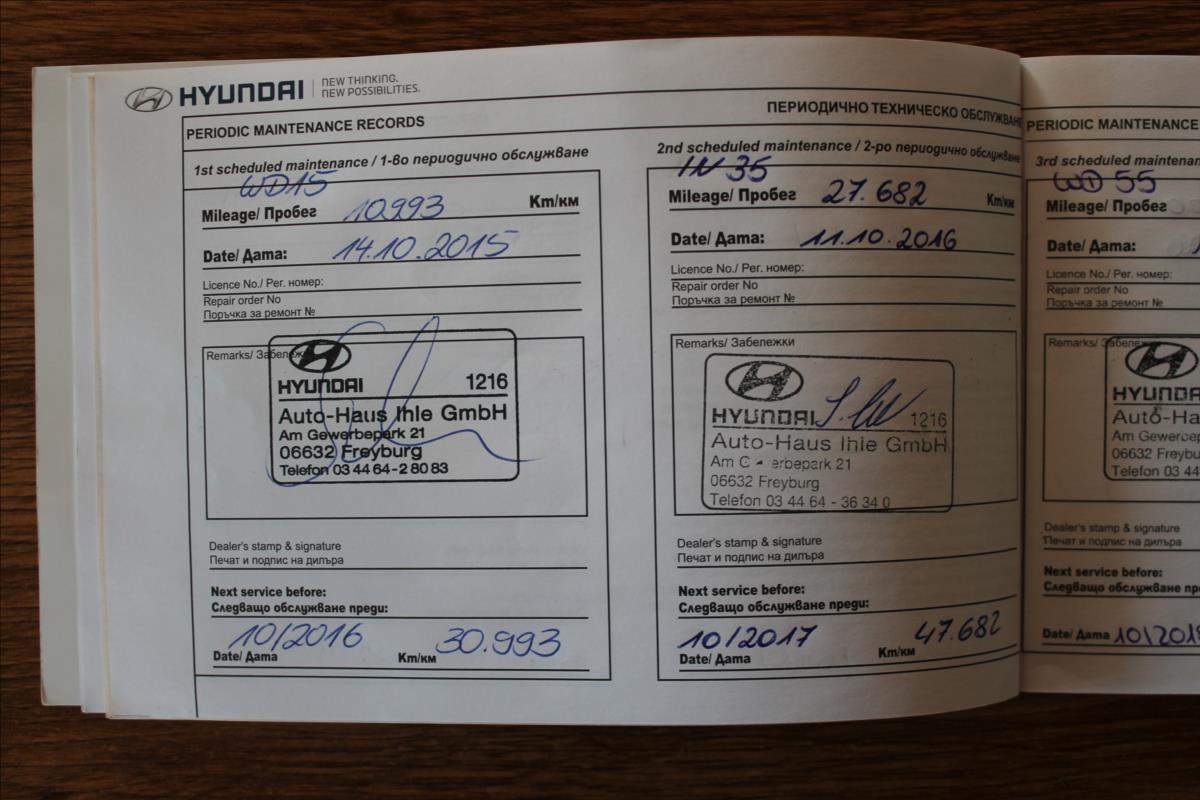 HYUNDAI NEW THINKING.
NEW POSSIBILITIES.
PERIODIC MAINTENANCE RECORDS
ПЕРИОДИЧНО ТЕХНИЧЕСКО ОБСЛУЖВАНЕ
1st scheduled maintenance / 1-во периодично обслужване
WD15
Mileage/ Пробег 10.993 Km/км
Date/ Дата: 14.10.2015
Licence No./ Рег. номер:
Repair order No
Поръчка за ремонт №
Remarks/ Забележки
HYUNDAI 1216
Auto-Haus Ihle GmbH
Am Gewerbepark 21
06632 Freyburg
Telefon 03 44 64-2 80 83
Dealer's stamp & signature
Печат и подпис на дилъра
Next service before:
Следващо обслужване преди:
10/2016 30.993
Date/ Дата Km/км
2nd scheduled maintenance / 2-ро периодично обслужване
IN 35
Mileage/ Пробег 27.682 Km/км
Date/ Дата: 11.10.2016
Licence No./ Рег. номер:
Repair order No
Поръчка за ремонт №
Remarks/ Забележки
HYUNDAI 1216
Auto-Haus Ihle GmbH
Am G erbepark 21
06632 Freyburg
Telefon 03 44 64 - 36 34 0
Dealer's stamp & signature
Печат и подпис на дилъра
Next service before:
Следващо обслужване преди:
10/2017 47.682
Date/ Дата Km/км
PERIODIC MAINTENANCE
3rd scheduled
WD 55
Mileage/ Пробег
Date/ Дата:
Licence No./ Рег. номер:
Repair order No
Поръчка за ремонт №
Remarks/
Auto-Ha
06632
Telefon 03 4
Dealer's stamp & signature
Печат и подпис на дилъра
Next service before:
Следващо обслужване
Date/ Дата 10/201